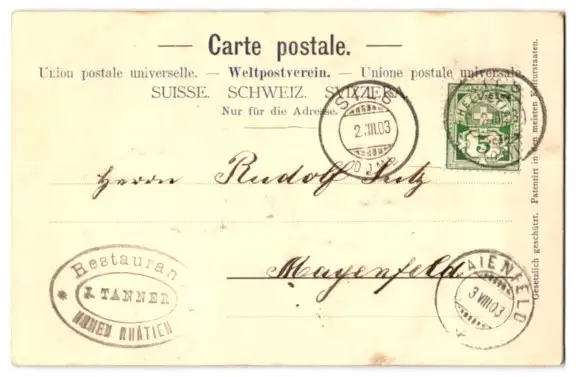 — Carte postale. —
Union postale universelle. — Weltpostverein. — Unione postale universale.
SUISSE. SCHWEIZ. SVIZZERA.
Nur für die Adresse.
2.VIII.03
HELVETIA
5
Herrn Rudolf
Mayenfeld
MAIENFELD
3 VIII 03
* Restauran
J. TANNER
HOHEN RHÄTIEN
Gesetzlich geschützt. Patentirt in den meisten Kulturstaaten.